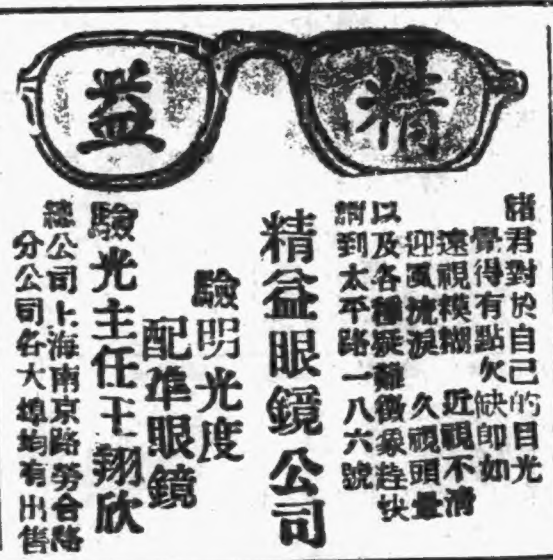 精益
諸君對於自己的目光
覺得有點欠缺即如
遠視模糊 近視不清
迎風流淚 久視頭暈
以及各種疑難徵象趕快
請到太平路一八六號
精益眼鏡公司
驗明光度
配準眼鏡
驗光主任王翔欣
總公司上海南京路勞合路
分公司各大埠均有出售